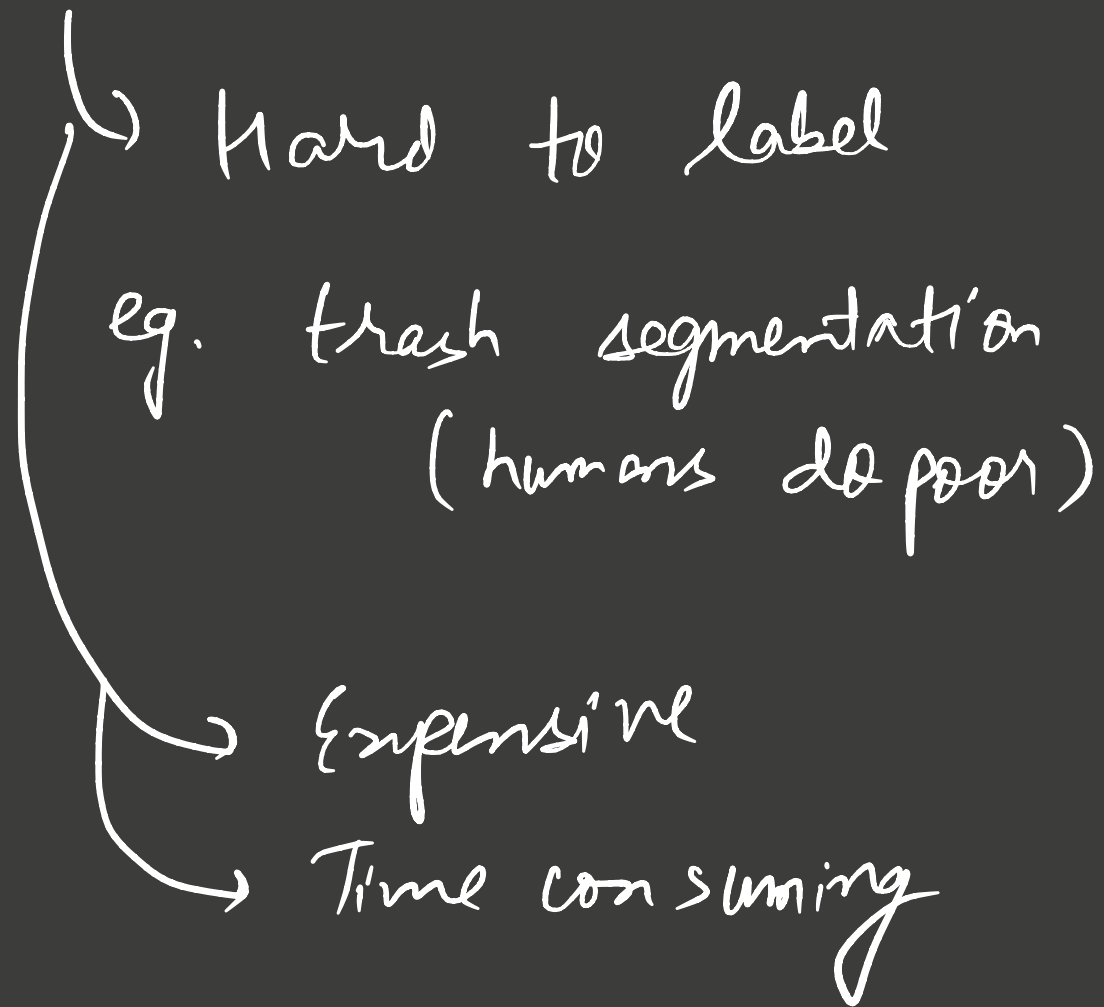 Hard to label
eg. trash segmentation
(humans do poor)
Expensive
Time consuming